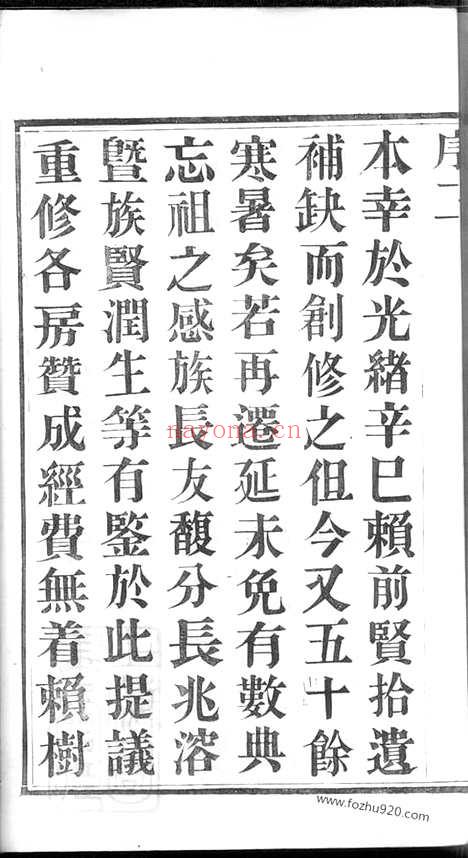 序二
本幸於光緒辛巳賴前賢拾遺
補缺而創修之但今又五十餘
寒暑矣若再遷延未免有數典
忘祖之感族長友馥分長兆溶
暨族賢潤生等有鑒於此提議
重修各房贊成經費無着賴樹
nayona.cn
www.fozhu920.com